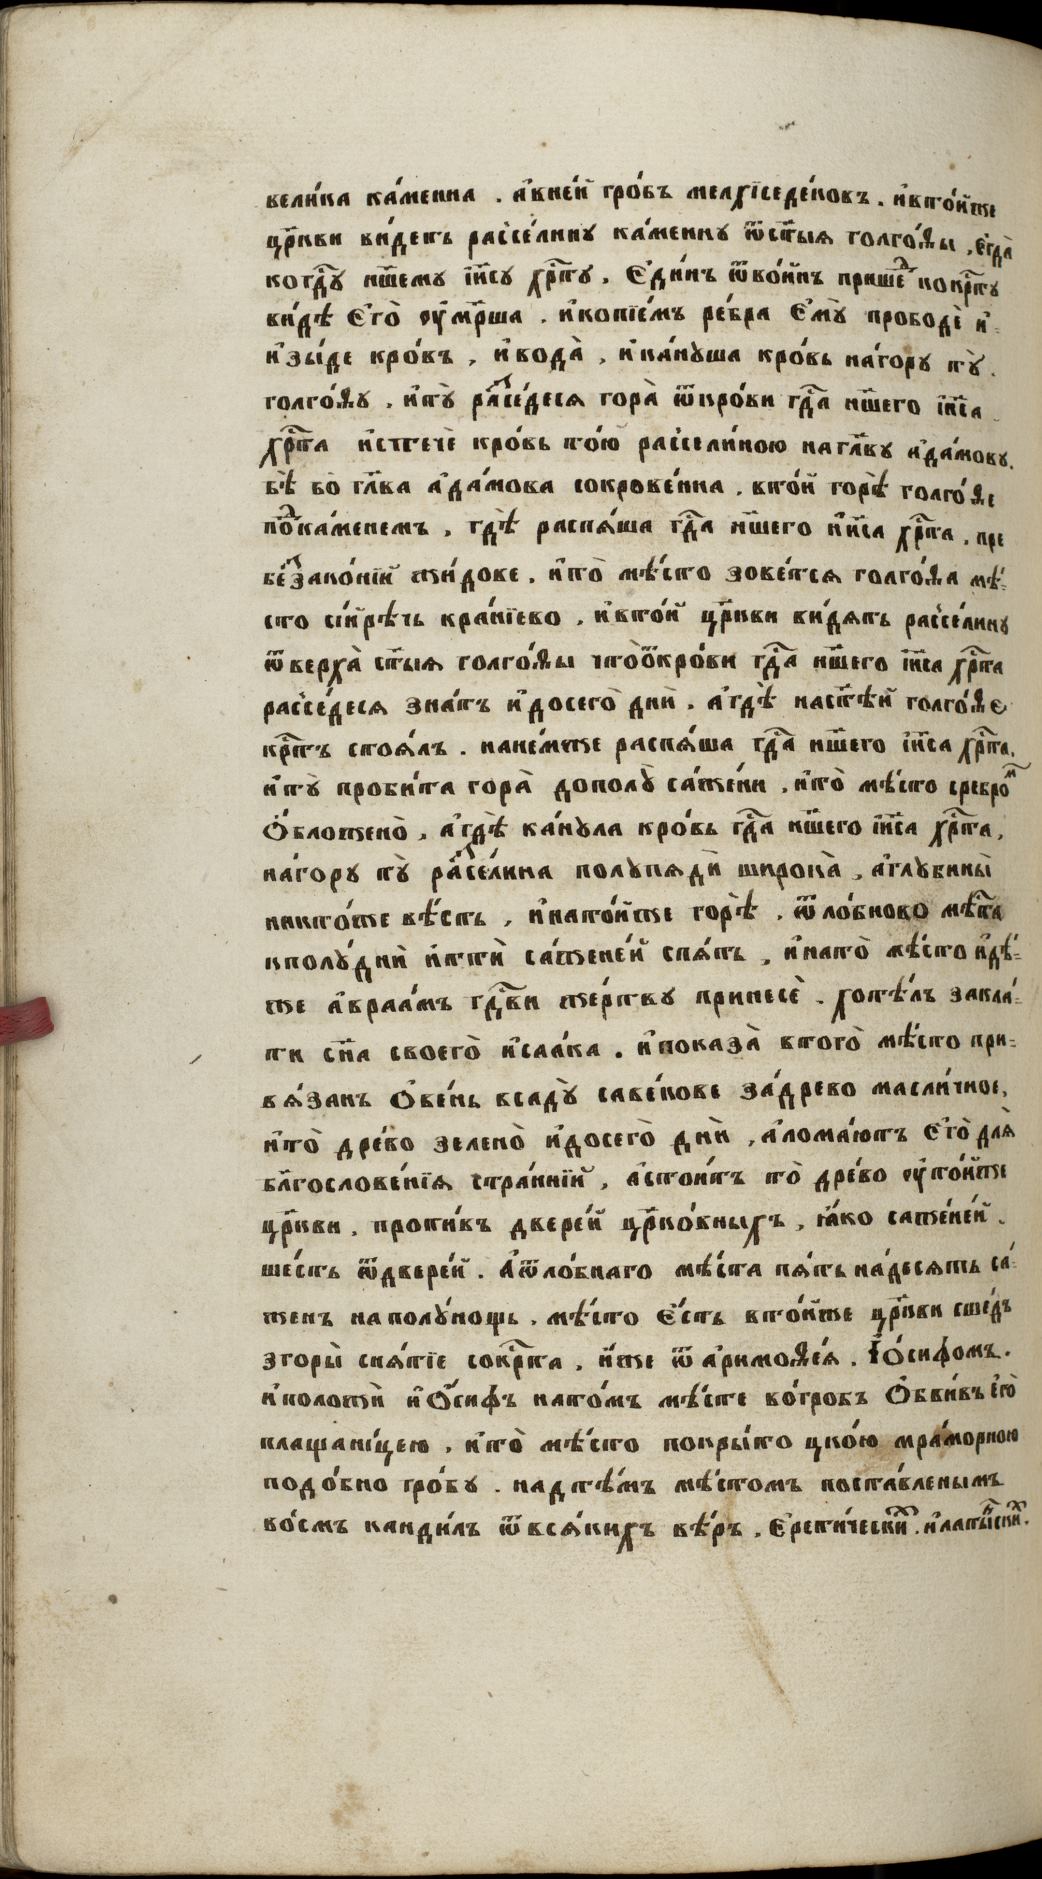 вели́ка ка́менна . а҆вне́й гро́бъ мелхїседе́ковъ . и҆вто́йже
цр҃кви ви́детъ разсе́лину ка́менну ѿст҃ы́я голго́ѳы , є҆гда̀
ко гдⷭ҇у нш҃ему і҆и҃су хрⷭ҇ту . Є҆ди́нъ ѿво́инъ прише́ⷣ кохрⷭ҇ту
ви́дѣ Є҆го̀ оу҆́мрⷲа . и҆копїе́мъ ре́бра Є҆мꙋ̀ прободѐ и҆-
и҆зы́де кро́въ , и҆вода̀ , и҆ка́нꙋша кро́вь на́гору тꙋ̀ .
голго́ѳꙋ . и҆тꙋ̀ разсе́деся гора̀ ѿкро́ви гдⷭ҇а нш҃его і҆и҃са
хрⷭ҇та и҆стечѐ кро́вь то́ю разсели́ною на гла́вꙋ а҆да́мовꙋ .
бѣ̀ бо̀ гл҃ва а҆да́мова сокрове́нна . вто́й горѣ̀ голго́ѳе
поⷣка́менемъ . гдѣ̀ распя́ша гдⷭ҇а нш҃его і҆и҃са хрⷭ҇та . пре
беззако́нїи жи́дове . и҆то̀ мѣ́сто зове́тся голго́ѳа мѣ́-
сто си́рѣчь кра́нїево . и҆вто́й цр҃кви ви́дятъ разсе́линꙋ
ѿверха̀ ст҃ы́я голго́ѳы что̀ѿкро́ви гдⷭ҇а нш҃его і҆и҃са хрⷭ҇та
разсе́деся зна́тъ и҆досего̀ днѝ . а҆гдѣ̀ наст҃ѣ́й голго́ѳе
крⷭ҇тъ стоя́лъ . нане́мже распя́ша гдⷭ҇а нш҃его і҆и҃са хрⷭ҇та .
и҆тꙋ̀ проби́та гора̀ дополꙋ̀ са́жени , и҆то̀ мѣ́сто сребро́ⷨ
Ѻ҆бложено̀ , а҆гдѣ̀ ка́нꙋла кро́вь гдⷭ҇а нш҃его і҆и҃са хрⷭ҇та ,
на́горꙋ тꙋ̀ разсе́лина полꙋпядѝ широка̀ , а҆глꙋбины̀
никто́же вѣ́стъ , и҆нато́йже горѣ̀ . ѿло́бново мѣ́ста
кполꙋ́дни и҆ттѝ са́женей спя́ть , и҆нато̀ мѣ́сто идѣ́-
же а҆враа́мъ гдⷭ҇ви же́ртвꙋ принесѐ . хотѣ́лъ закла́-
ти сн҃а своего̀ и҆саа́ка . и҆показа̀ втого̀ мѣ́сто при-
вя́занъ Ѻ҆ве́нь всадꙋ̀ саве́кове за́древо масли́чное ,
и҆то̀ дре́во зелено̀ и҆досего̀ днѝ , а҆лома́ютъ Є҆го̀ для̀
бл҃гослове́нїя стра́ннїи , а҆стои́тъ то̀ дре́во оу҆то́йже
цр҃кви , проти́въ двере́й цр҃ко́вныхъ , ꙗ҆́ко саже́ней .
ше́сть ѿдвере́й . А҆ѿло́бнаго мѣ́ста пя́тьна́десять са́-
женъ наполꙋ́нощь . мѣ́сто Є҆́сть вто́йже цр҃кви сше́дъ
згоры̀ сня́тїе сокрⷭ҇та . и҆́же ѿ аримоѳе́я . І҆ѻ́сифомъ .
и҆положѝ и҆Ѻ́сифъ нато́мъ мѣ́сте во́гробъ Ѻ҆бви́въ є҆го̀
плащани́цею . и҆то̀ мѣ́сто покры́то цко́ю мра́морною
подо́бно гро́бꙋ . надтѣ́мъ мѣ́стомъ поста́вленымъ
во́смъ канди́лъ ѿвся́кихъ вѣ́ръ . Є҆рети́ческиⷯ . и҆латы́нскиⷯ .